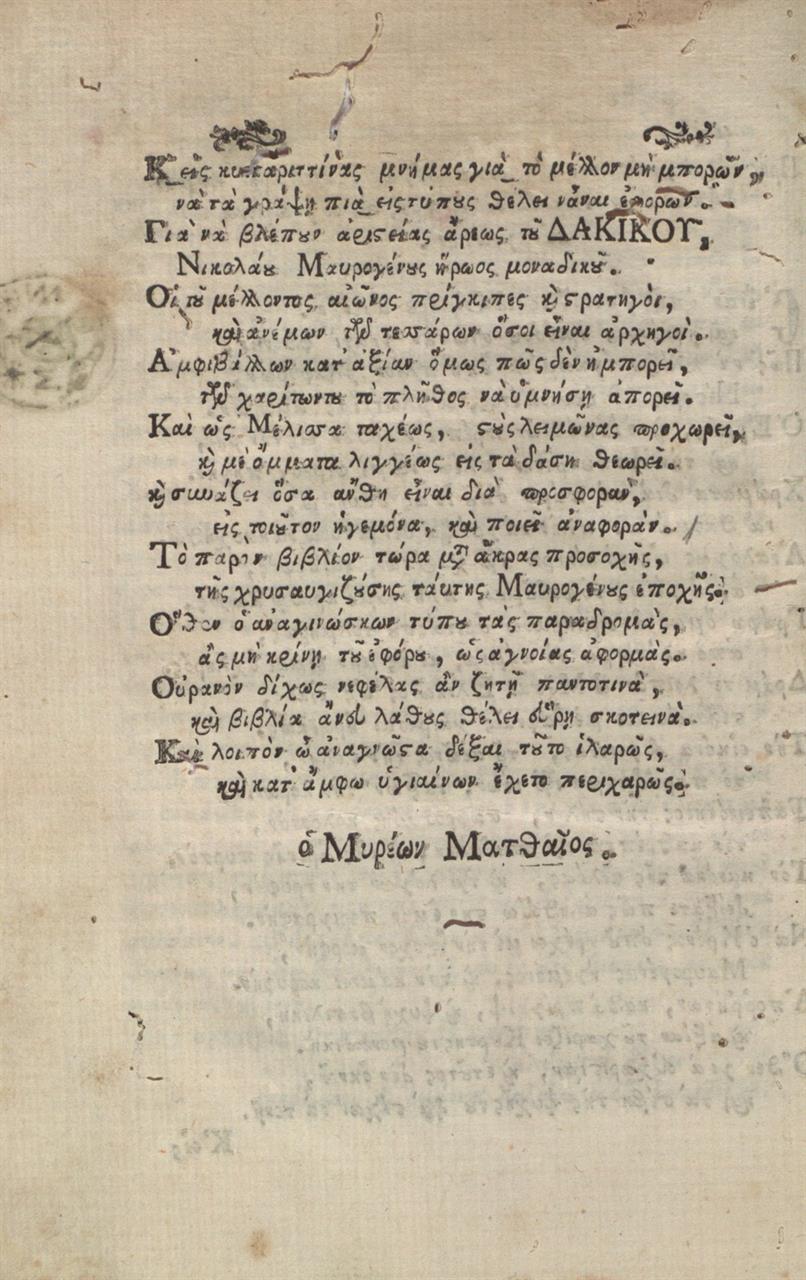 Κ᾽ εἰς κυπαριττίνας μνήμας γιὰ τὸ μέλλον μὴ μπορῶν,
νὰ τὰ γράψῃ πιὰ εἰς τύπους θέλει νἆναι ἐφορῶν.
Γιὰ νὰ βλέπουν ἀριστείας ἄρεως τοῦ ΔΑΚΙΚΟΥ,
Νικολάου Μαυρογένους ἥρωος μοναδικοῦ.
Οἱ τοῦ μέλλοντος αἰῶνος πρίγκιπες καὶ στρατηγοὶ,
καὶ ἀνέμων τῶν τεσσάρων ὅσοι εἶναι ἀρχηγοί.
Ἀμφιβάλλων κατ᾽ ἀξίαν ὅμως πῶς δὲν ἠμπορεῖ,
τῶν χαρίτων του τὸ πλῆθος νὰ ὑμνήσῃ ἀπορεῖ.
Καὶ ὡς Μέλισσα ταχέως, στοὺς λειμῶνας προχωρεῖ,
καὶ μὲ ὄμματα λιγγέως εἰς τὰ δάση θεωρεῖ.
καὶ συνάζει ὅσα ἄνθη εἶναι διὰ προσφορὰν,
εἰς τοιοῦτον ἡγεμόνα, καὶ ποιεῖ ἀναφοράν.
Τὸ παρὸν βιβλίον τώρα μετὰ ἄκρας προσοχῆς,
τῆς χρυσαυγιζούσης ταύτης Μαυρογένους ἐποχῆς.
Ὅθεν ὁ ἀναγινώσκων τύπου τὰς παραδρομὰς,
ἂς μὴ κρίνῃ τοῦ ἐφόρου, ὡς ἀγνοίας ἀφορμάς.
Οὐρανὸν δίχως νεφέλας ἂν ζητῇ παντοτινὰ,
καὶ βιβλία ἄνευ λάθους θέλει εὕρῃ σκοτεινά.
Καὶ λοιπὸν ὦ ἀναγνῶστα δέξαι τοῦτο ἱλαρῶς,
καὶ κατ᾽ ἄμφω ὑγιαίνων ἔχετο περιχαρῶς.
ὁ Μυρέων Ματθαῖος.